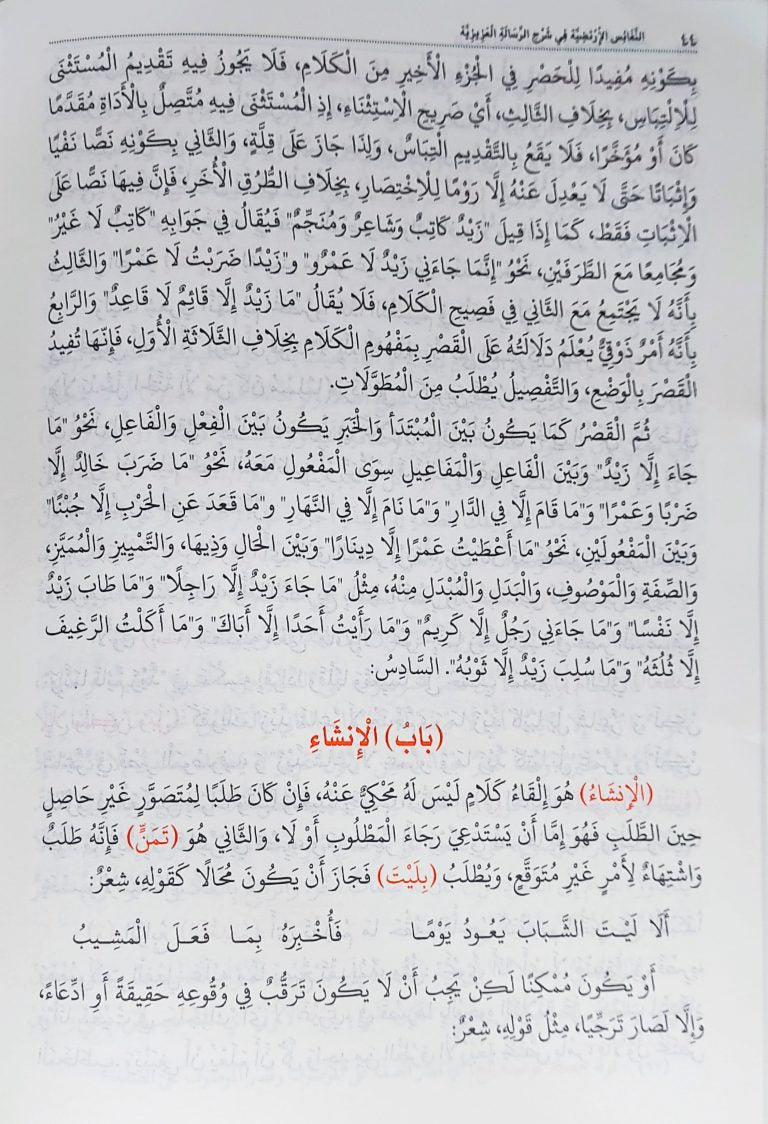 ٤٤ النَّفَائِسُ الْاِرْتَضِيَّة فِي شَرْحِ الرِّسَالَةِ الْعَزِيزِيَّة
بِكَوْنِهِ مُفِيدًا لِلْحَصْرِ فِي الْجُزْءِ الْأَخِيرِ مِنَ الْكَلَامِ، فَلَا يَجُوزُ فِيهِ تَقْدِيمُ الْمُسْتَثْنَى
لِلْاِلْتِبَاسِ، بِخِلَافِ الثَّالِثِ، أَيْ صَرِيحِ الْاِسْتِثْنَاءِ، إِذِ الْمُسْتَثْنَى فِيهِ مُتَّصِلٌ بِالْأَدَاةِ مُقَدَّمًا
كَانَ أَوْ مُؤَخَّرًا، فَلَا يَقَعُ بِالتَّقْدِيمِ الْتِبَاسٌ، وَلِذَا جَازَ عَلَى قِلَّةٍ، وَالثَّانِي بِكَوْنِهِ نَصًّا نَفْيًا
وَإِثْبَاتًا حَتَّى لَا يَعْدِلَ عَنْهُ إِلَّا رَوْمًا لِلْاِخْتِصَارِ، بِخِلَافِ الطُّرُقِ الْأُخَرِ، فَإِنَّ فِيهَا نَصًّا عَلَى
الْإِثْبَاتِ فَقَطْ، كَمَا إِذَا قِيلَ "زَيْدٌ كَاتِبٌ وَشَاعِرٌ وَمُنَجِّمٌ" فَيُقَالُ فِي جَوَابِهِ "كَاتِبٌ لَا غَيْرُ"
وَمُجَامِعًا مَعَ الطَّرَفَيْنِ، نَحْوُ "إِنَّمَا جَاءَنِي زَيْدٌ لَا عَمْرٌو" و"زَيْدًا ضَرَبْتُ لَا عَمْرًا" وَالثَّالِثُ
بِأَنَّهُ لَا يَجْتَمِعُ مَعَ الثَّانِي فِي فَصِيحِ الْكَلَامِ، فَلَا يُقَالُ "مَا زَيْدٌ إِلَّا قَائِمٌ لَا قَاعِدٌ" وَالرَّابِعُ
بِأَنَّهُ أَمْرٌ ذَوْقِيٌّ يُعْلَمُ دَلَالَتُهُ عَلَى الْقَصْرِ بِمَفْهُومِ الْكَلَامِ بِخِلَافِ الثَّلَاثَةِ الْأُوَلِ، فَإِنَّهَا تُفِيدُ
الْقَصْرَ بِالْوَضْعِ، وَالتَّفْصِيلُ يُطْلَبُ مِنَ الْمُطَوَّلَاتِ.
ثُمَّ الْقَصْرُ كَمَا يَكُونُ بَيْنَ الْمُبْتَدَأ وَالْخَبَرِ يَكُونُ بَيْنَ الْفِعْلِ وَالْفَاعِلِ، نَحْوُ "مَا
جَاءَ إِلَّا زَيْدٌ" وَبَيْنَ الْفَاعِلِ وَالْمَفَاعِيلِ سِوَى الْمَفْعُولِ مَعَهُ، نَحْوُ "مَا ضَرَبَ خَالِدٌ إِلَّا
ضَرْبًا وَعَمْرًا" وَ"مَا قَامَ إِلَّا فِي الدَّارِ" وَ"مَا نَامَ إِلَّا فِي النَّهَارِ" و"مَا قَعَدَ عَنِ الْحَرْبِ إِلَّا جُبْنًا"
وَبَيْنَ الْمَفْعُولَيْنِ، نَحْوُ "مَا أَعْطَيْتُ عَمْرًا إِلَّا دِينَارًا" وَبَيْنَ الْحَالِ وَذِيهَا، وَالتَّمْيِيزِ وَالْمُمَيَّزِ،
وَالصِّفَةِ وَالْمَوْصُوفِ، وَالْبَدَلِ وَالْمُبْدَلِ مِنْهُ، مِثْلُ "مَا جَاءَ زَيْدٌ إِلَّا رَاجِلًا" وَ"مَا طَابَ زَيْدٌ
إِلَّا نَفْسًا" وَ"مَا جَاءَنِي رَجُلٌ إِلَّا كَرِيمٌ" وَ"مَا رَأَيْتُ أَحَدًا إِلَّا أَبَاكَ" وَ"مَا أَكَلْتُ الرَّغِيفَ
إِلَّا ثُلُثَهُ" وَ"مَا سُلِبَ زَيْدٌ إِلَّا ثَوْبُهُ". السَّادِسُ:
(بَابُ) الْإِنشَاءِ
(الْإِنشَاءُ) هُوَ إِلْقَاءُ كَلَامٍ لَيْسَ لَهُ مَحْكِيٌّ عَنْهُ، فَإِنْ كَانَ طَلَبًا لِمُتَصَوَّرٍ غَيْرِ حَاصِلٍ
حِينَ الطَّلَبِ فَهُوَ إِمَّا أَنْ يَسْتَدْعِيَ رَجَاءَ الْمَطْلُوبِ أَوْ لَا، وَالثَّانِي هُوَ (تَمَنٍّ) فَإِنَّهُ طَلَبٌ
وَاشْتِهَاءٌ لِأَمْرٍ غَيْرِ مُتَوَقَّعٍ، وَيُطْلَبُ (بِلَيْتَ) فَجَازَ أَنْ يَكُونَ مُحَالًا كَقَوْلِهِ، شِعْرٌ:
أَلَا لَيْتَ الشَّبَابَ يَعُودُ يَوْمًا فَأُخْبِرَهُ بِمَا فَعَلَ الْمَشِيبُ
أَوْ يَكُونَ مُمْكِنًا لَكِنْ يَجِبُ أَنْ لَا يَكُونَ تَرَقُّبٌ فِي وُقُوعِهِ حَقِيقَةً أَوِ ادِّعَاءً،
وَإِلَّا لَصَارَ تَرَجِّيًا، مِثْلُ قَوْلِهِ، شِعْرٌ: